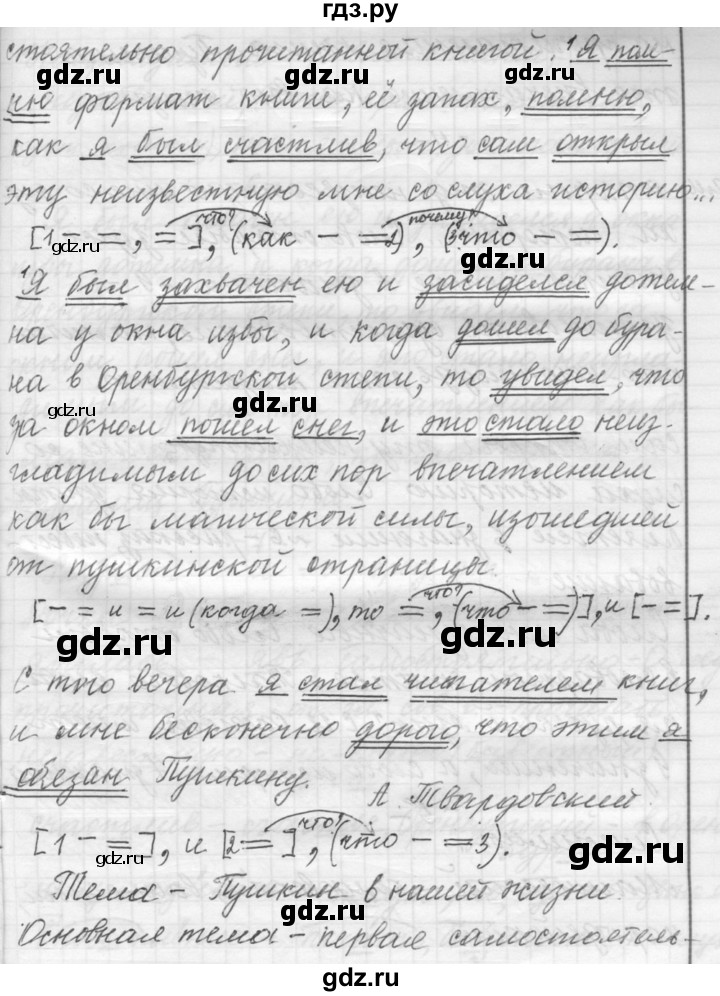 гдз.ру
стоятельно прочитанной книгой. ¹Я пом-
gdz.ru gdz.ru
ню формат книги, её запах, помню,
как я был счастлив, что сам открыл
эту неизвестную мне со слуха историю...
что? почему?
[1= =, =], (как – =2), (3что – =).
gdz.ru gdz.ru
¹Я был захвачен ею и засиделся дотем-
на у окна избы, и когда дошел до бура-
на в Оренбургской степи, то увидел, что
gdz.ru gdz.ru
за окном пошел снег, и это стало неиз-
гладимым до сих пор впечатлением
как бы магической силы, изошедшей
от пушкинской страницы.
что?
[– = и = и (когда =), то =, (что – =)], и [– =].
gdz.ru gdz.ru
С того вечера я стал читателем книг,
и мне бесконечно дорого, что этим я
обязан Пушкину.
А. Твардовский.
что?
[1 – =], и [2 = ], (что – =3).
gdz.ru gdz.ru
Тема – Пушкин в нашей жизни.
Основная тема – первая самостоятель-
gdz.ru